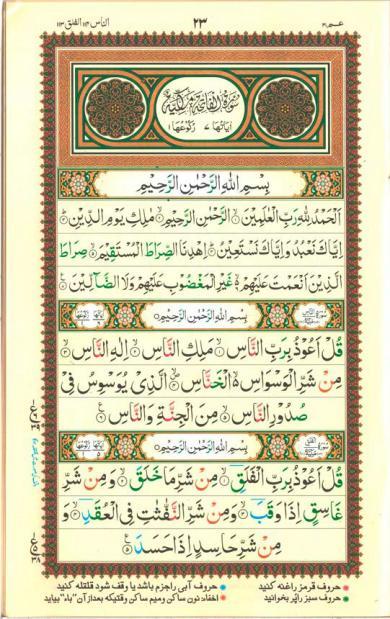 عم ٣٠ ٢٣ الناس ١١٤ الفلق ١١٣
سُورَةُ الْفَاتِحَةِ مَكِّيَّةٌ
اٰيَاتُهَا ٧ رُكُوْعُهَا ١
بِسْمِ اللّٰهِ الرَّحْمٰنِ الرَّحِيْمِ
اَلْحَمْدُ لِلّٰهِ رَبِّ الْعٰلَمِيْنَ ۙ الرَّحْمٰنِ الرَّحِيْمِ ۙ مٰلِكِ يَوْمِ الدِّيْنِ ۗ
اِيَّاكَ نَعْبُدُ وَاِيَّاكَ نَسْتَعِيْنُ ۗ اِهْدِنَا الصِّرَاطَ الْمُسْتَقِيْمَ ۙ صِرَاطَ
الَّذِيْنَ اَنْعَمْتَ عَلَيْهِمْ ۙ غَيْرِ الْمَغْضُوْبِ عَلَيْهِمْ وَلَا الضَّآلِّيْنَ
بِسْمِ اللّٰهِ الرَّحْمٰنِ الرَّحِيْمِ
قُلْ اَعُوْذُ بِرَبِّ النَّاسِ ۙ مَلِكِ النَّاسِ ۙ اِلٰهِ النَّاسِ ۙ
مِنْ شَرِّ الْوَسْوَاسِ ۙ الْخَنَّاسِ ۙ الَّذِيْ يُوَسْوِسُ فِيْ
صُدُوْرِ النَّاسِ ۙ مِنَ الْجِنَّةِ وَالنَّاسِ
بِسْمِ اللّٰهِ الرَّحْمٰنِ الرَّحِيْمِ
قُلْ اَعُوْذُ بِرَبِّ الْفَلَقِ ۙ مِنْ شَرِّ مَا خَلَقَ ۙ وَمِنْ شَرِّ
غَاسِقٍ اِذَا وَقَبَ ۙ وَمِنْ شَرِّ النَّفّٰثٰتِ فِي الْعُقَدِ ۙ وَ
مِنْ شَرِّ حَاسِدٍ اِذَا حَسَدَ
حروف قرمز را غنه کنید حروف آبی را جزم باشد یا وقف شود قلقله کنید
حروف سبز را پر بخوانید اخفاء نون ساکن و میم ساکن وقتیکه بعد از آن "باء" بیاید